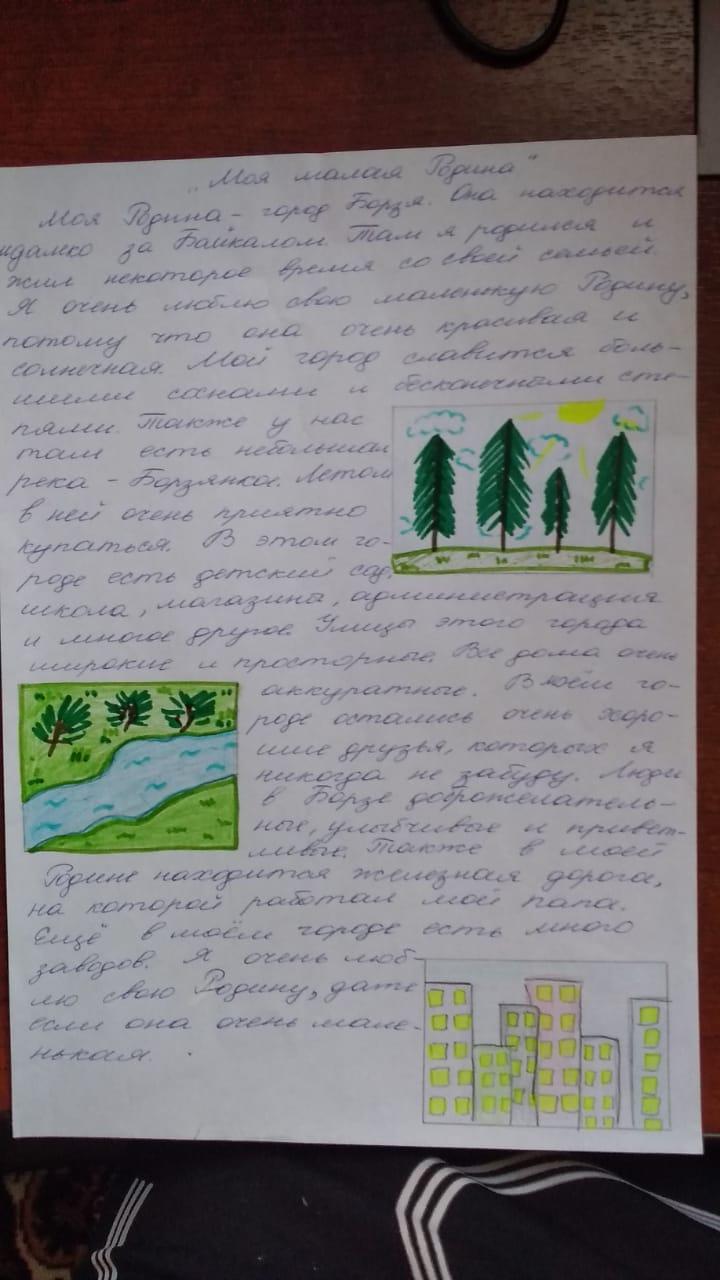 „Моя малая Родина"
Моя Родина - город Борзя. Она находится
далеко за Байкалом. Там я родился и
жил некоторое время со своей семьёй.
Я очень люблю свою маленькую Родину,
потому что она очень красивая и
солнечная. Мой город славится боль-
шими соснами и бесконечными сте-
пями. Также у нас
там есть небольшая
река - Борзянка. Летом
в ней очень приятно
купаться. В этом го-
роде есть детский сад,
школа, магазины, администрация
и многое другое. Улицы этого города
широкие и просторные. Все дома очень
аккуратные. В моём го-
роде остались очень хоро-
шие друзья, которых я
никогда не забуду. Люди
в Борзе доброжелатель-
ные, улыбчивые и привет-
ливые. Также в моей
Родине находится железная дорога,
на которой работал мой папа.
Ещё в моём городе есть много
заводов. Я очень люб-
лю свою Родину, даже
если она очень мале-
нькая.